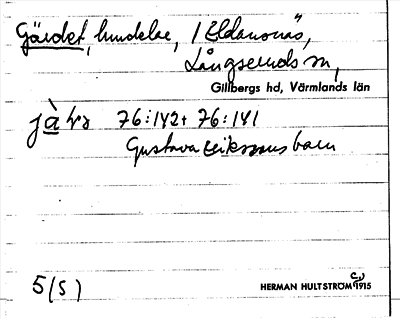 Gärdet, hundelse, / Eldanonäs,
Långseruds sn,
Gillbergs hd, Värmlands län
jà 76:142+ 76:141
Gustava Erikssons barn
5(S)
HERMAN HULTSTRÖM 1915